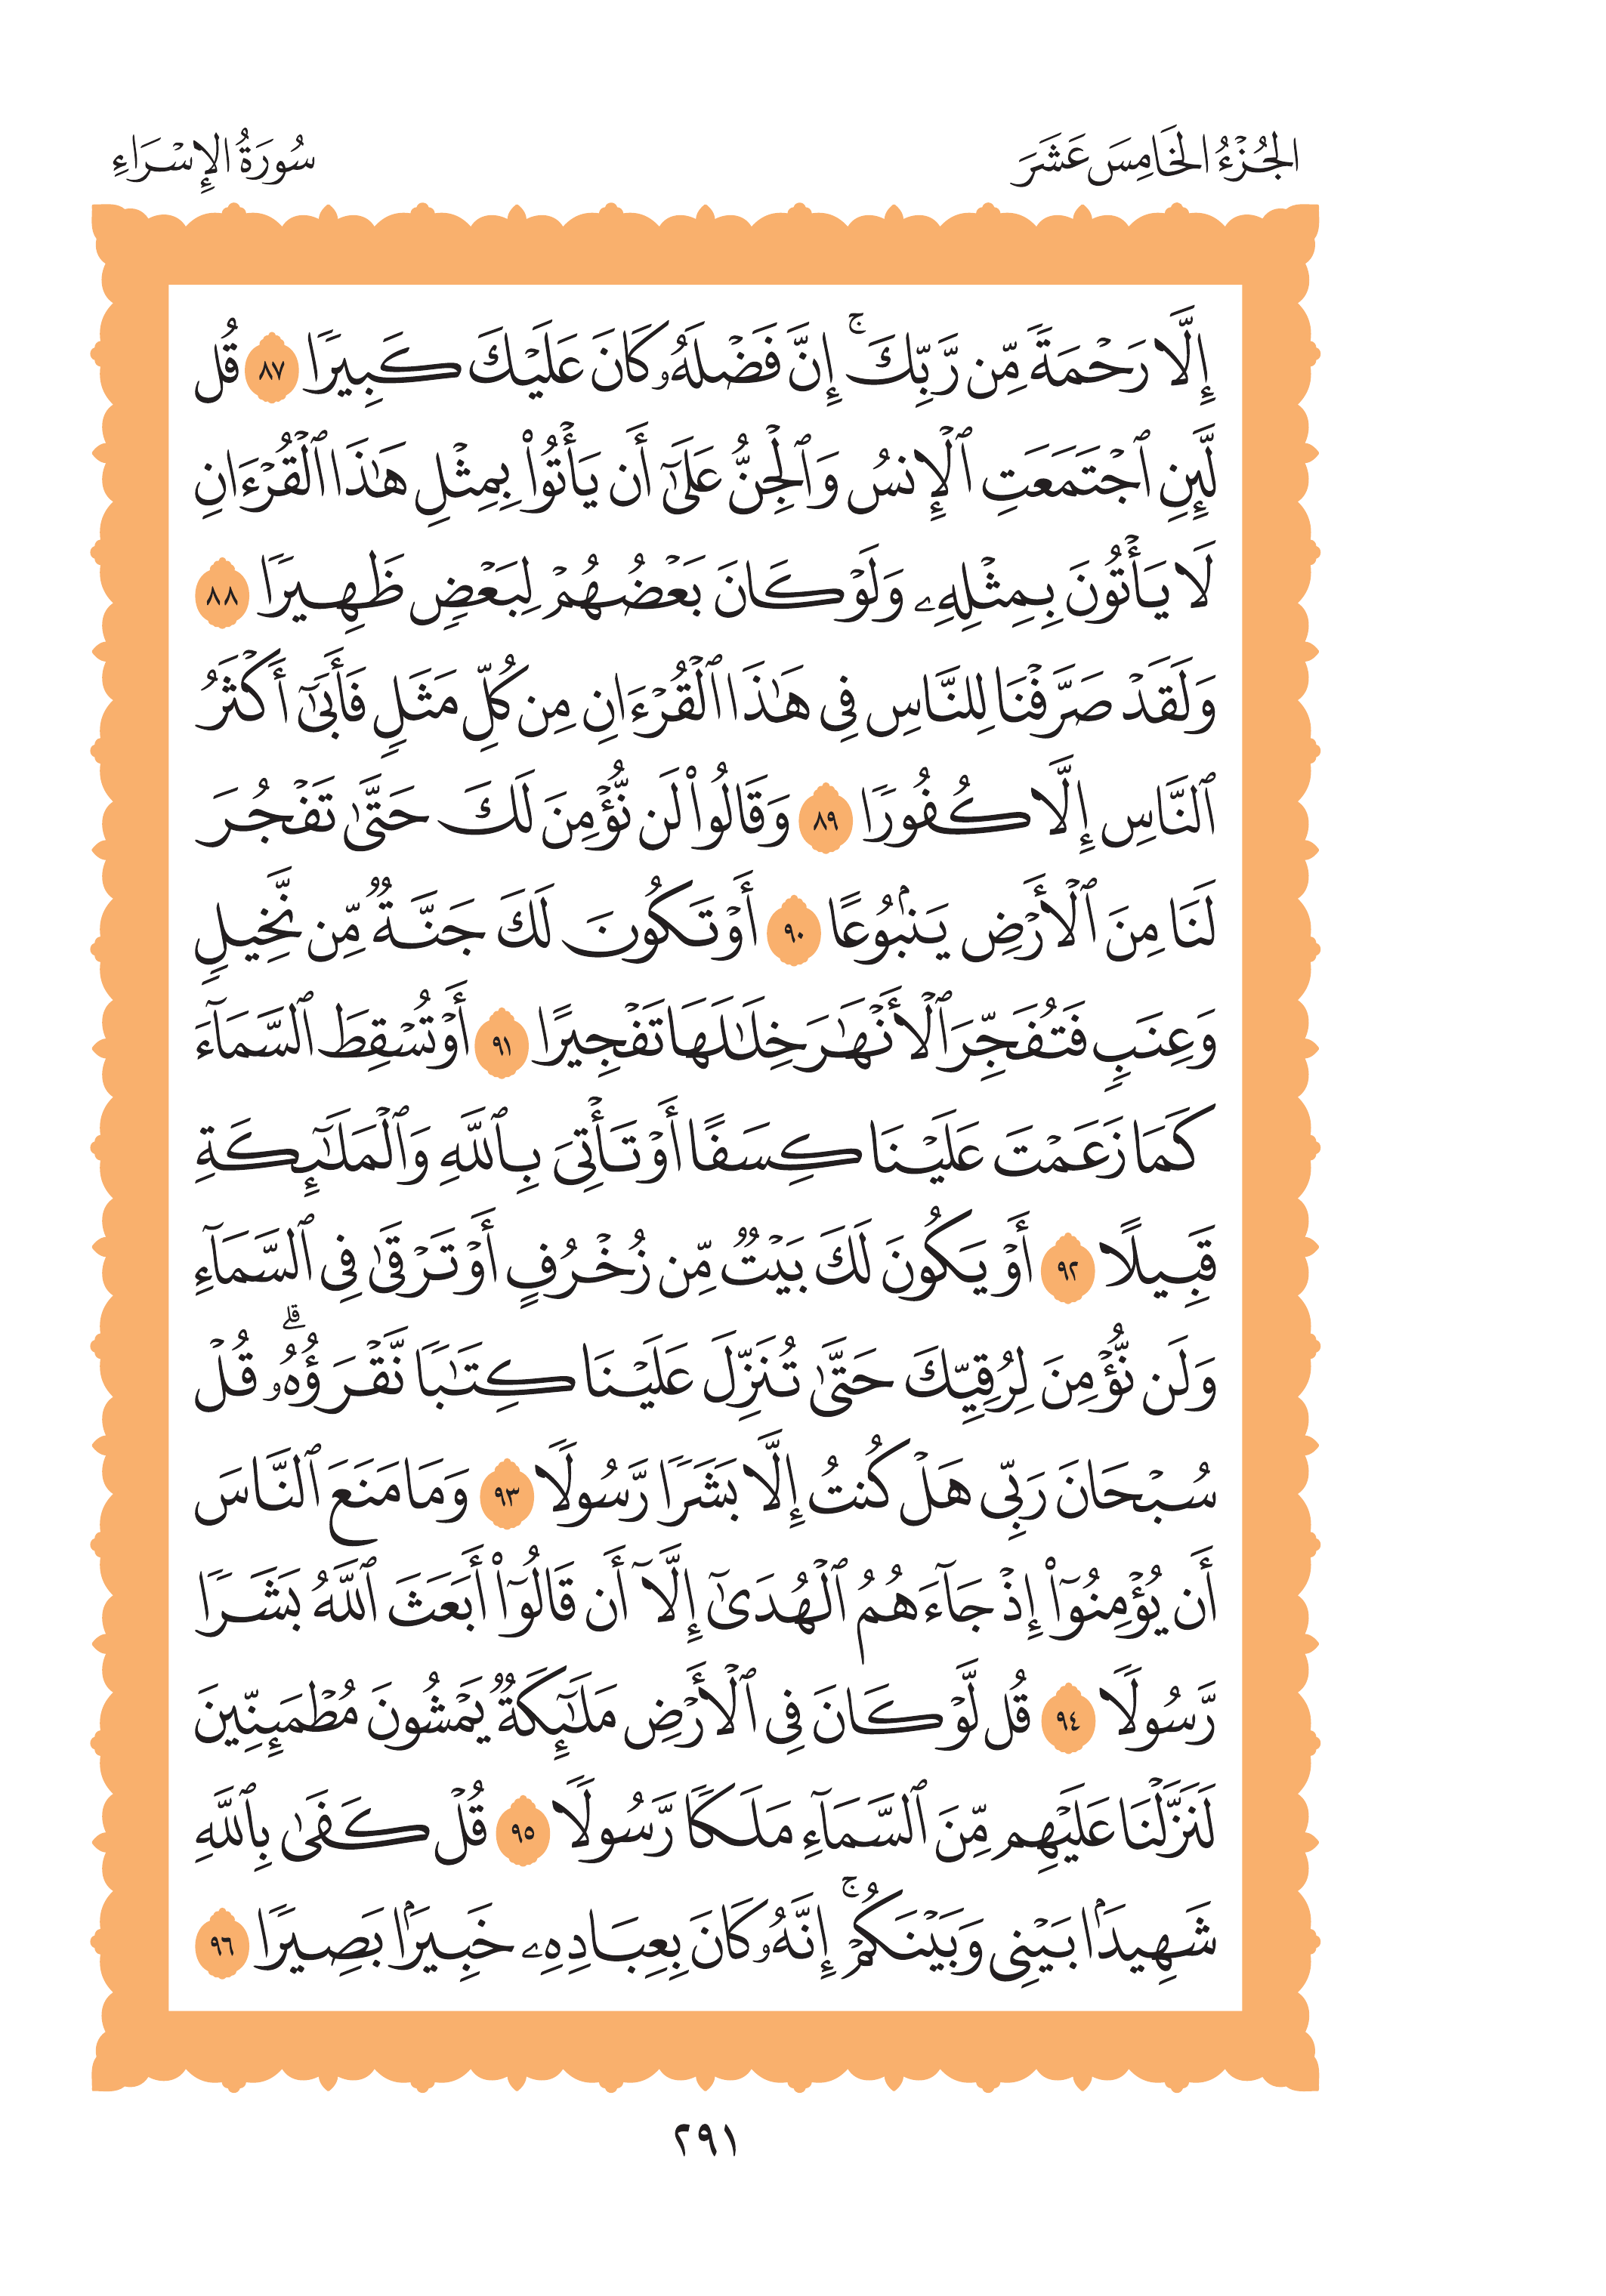 الجُزْءُ الخَامِسَ عَشَرَ
سُورَةُ الإِسْرَاءِ
إِلَّا رَحْمَةً مِّن رَّبِّكَۚ إِنَّ فَضْلَهُۥ كَانَ عَلَيْكَ كَبِيرًا ٨٧ قُل
لَّئِنِ ٱجْتَمَعَتِ ٱلْإِنسُ وَٱلْجِنُّ عَلَىٰٓ أَن يَأْتُوا۟ بِمِثْلِ هَـٰذَا ٱلْقُرْءَانِ
لَا يَأْتُونَ بِمِثْلِهِۦ وَلَوْ كَانَ بَعْضُهُمْ لِبَعْضٍ ظَهِيرًا ٨٨
وَلَقَدْ صَرَّفْنَا لِلنَّاسِ فِى هَـٰذَا ٱلْقُرْءَانِ مِن كُلِّ مَثَلٍ فَأَبَىٰٓ أَكْثَرُ
ٱلنَّاسِ إِلَّا كُفُورًا ٨٩ وَقَالُوا۟ لَن نُّؤْمِنَ لَكَ حَتَّىٰ تَفْجُرَ
لَنَا مِنَ ٱلْأَرْضِ يَنۢبُوعًا ٩٠ أَوْ تَكُونَ لَكَ جَنَّةٌ مِّن نَّخِيلٍ
وَعِنَبٍ فَتُفَجِّرَ ٱلْأَنْهَـٰرَ خِلَـٰلَهَا تَفْجِيرًا ٩١ أَوْ تُسْقِطَ ٱلسَّمَآءَ
كَمَا زَعَمْتَ عَلَيْنَا كِسَفًا أَوْ تَأْتِىَ بِٱللَّهِ وَٱلْمَلَـٰٓئِكَةِ
قَبِيلًا ٩٢ أَوْ يَكُونَ لَكَ بَيْتٌ مِّن زُخْرُفٍ أَوْ تَرْقَىٰ فِى ٱلسَّمَآءِ
وَلَن نُّؤْمِنَ لِرُقِيِّكَ حَتَّىٰ تُنَزِّلَ عَلَيْنَا كِتَـٰبًا نَّقْرَؤُهُۥۗ قُلْ
سُبْحَانَ رَبِّى هَلْ كُنتُ إِلَّا بَشَرًا رَّسُولًا ٩٣ وَمَا مَنَعَ ٱلنَّاسَ
أَن يُؤْمِنُوٓا۟ إِذْ جَآءَهُمُ ٱلْهُدَىٰٓ إِلَّآ أَن قَالُوٓا۟ أَبَعَثَ ٱللَّهُ بَشَرًا
رَّسُولًا ٩٤ قُل لَّوْ كَانَ فِى ٱلْأَرْضِ مَلَـٰٓئِكَةٌ يَمْشُونَ مُطْمَئِنِّينَ
لَنَزَّلْنَا عَلَيْهِم مِّنَ ٱلسَّمَآءِ مَلَكًا رَّسُولًا ٩٥ قُلْ كَفَىٰ بِٱللَّهِ
شَهِيدًۢا بَيْنِى وَبَيْنَكُمْۚ إِنَّهُۥ كَانَ بِعِبَادِهِۦ خَبِيرًۢا بَصِيرًا ٩٦
٢٩١